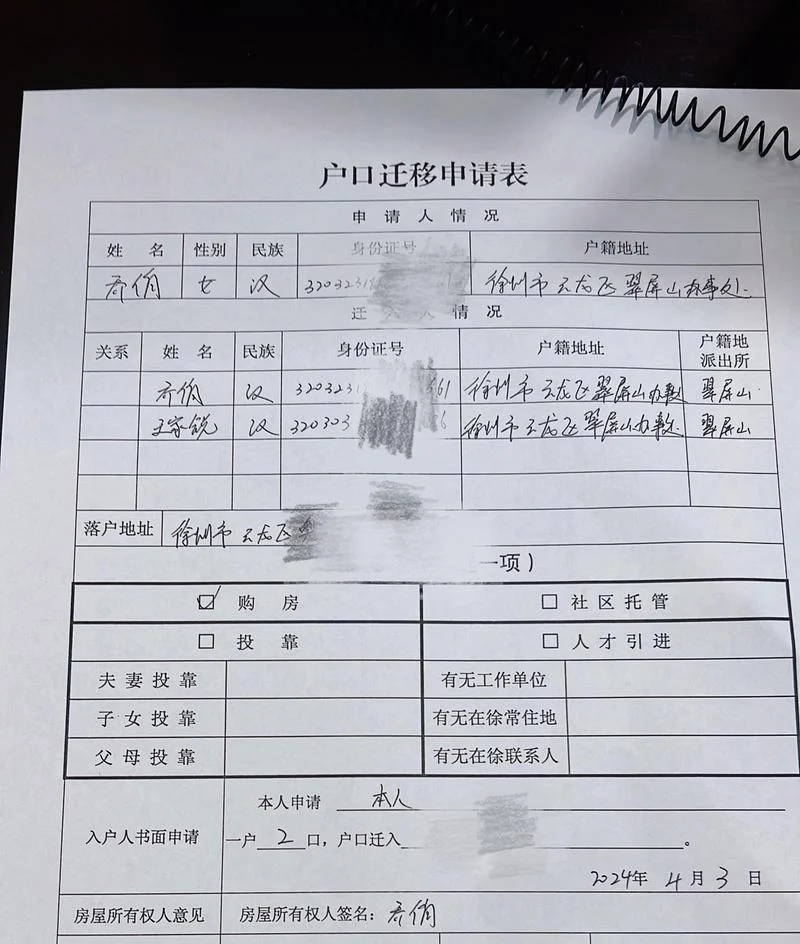 户口迁移申请表
申请人情况
姓名 性别 民族 身份证号 户籍地址
乔俏 女 汉 320323 徐州市云龙区翠屏山办事处
迁 人情况
关系 姓名 民族 身份证号 户籍地址 户籍地派出所
乔俏 汉 320323 61 徐州市云龙区翠屏山办事处 翠屏山
王家锐 汉 320303 6 徐州市云龙区翠屏山办事处 翠屏山
落户地址 徐州市云龙区
一项)
☑ 购房 □ 社区托管
□ 投靠 □ 人才引进
夫妻投靠 有无工作单位
子女投靠 有无在徐常住地
父母投靠 有无在徐联系人
本人申请 本人
入户人书面申请 一户 2 口,户口迁入 。
2024年 4月 3日
房屋所有权人意见 房屋所有权人签名:乔俏